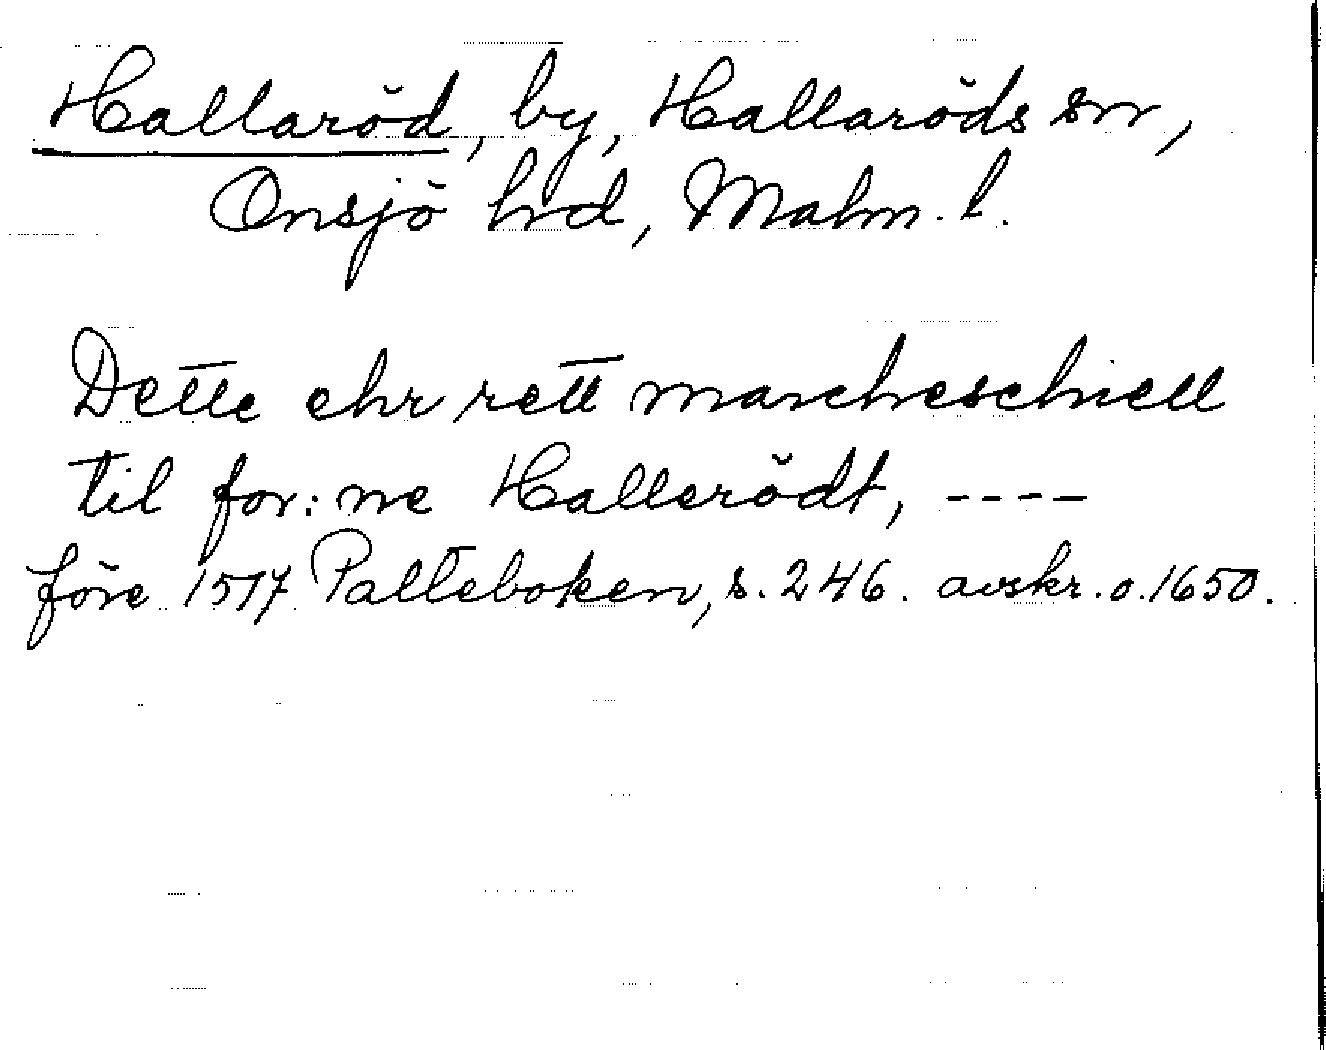 Hallaröd, by, Hallaröds sn,
Onsjö hd, Malm. l.
Dette ehr rett marcheschiell
til for:ne Hallerödt, ----
före 1517 Palteboken, s. 246. avskr. o. 1650.